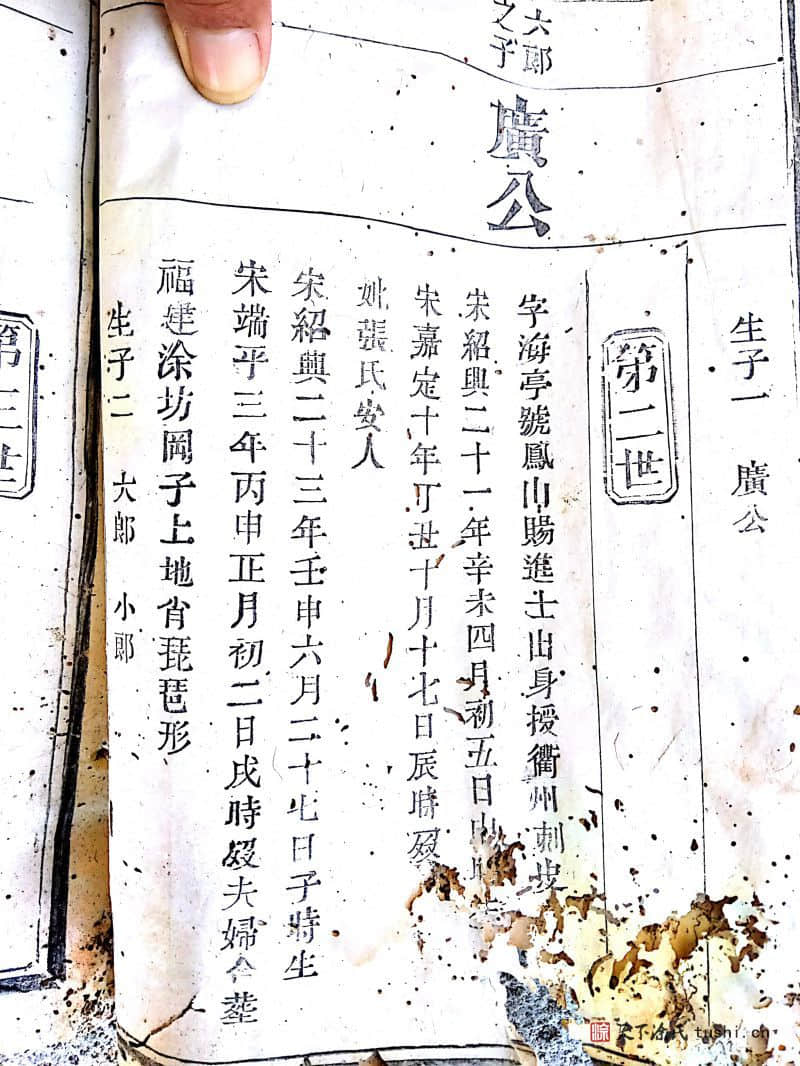 生子一 廣公
第二世
六郎
之子
廣公
字海亭號鳳山賜進士出身授衢州刺史
宋紹興二十一年辛未四月初五日
宋嘉定十年丁丑十月十七日辰時歿
妣張氏安人
宋紹興二十三年壬申六月二十七日子時生
宋端平三年丙申正月初二日戌時歿夫婦合塟
福建涂坊岡子上地肖琵琶形
生子二 大郎 小郎
第三世
天下涂氏 tushi.ch